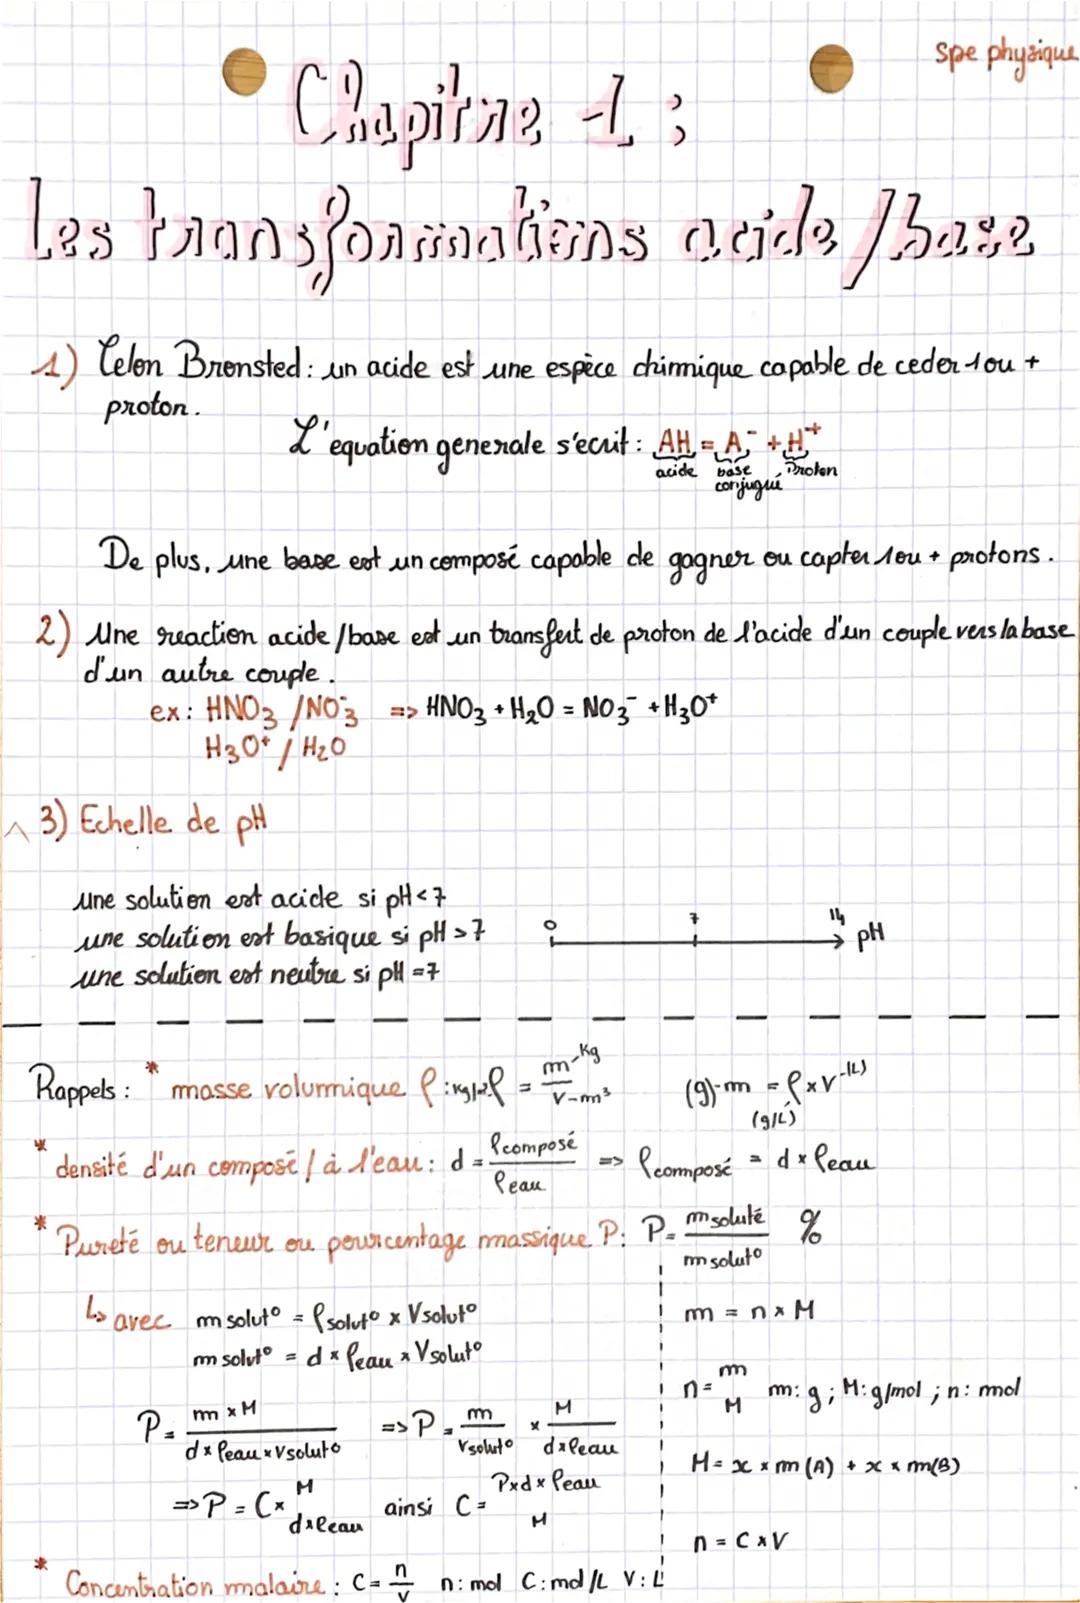 Spe physique
Chapitre 1 :
les transformations acide/base
1) Celon Bronsted : un acide est une espèce chimmique capable de ceder 1 ou +
proton.
L'equation generale s'ecrit : AH = A⁻ + H⁺
acide base Proton
conjugué
De plus, une base est un composé capable de gagner ou capter 1 ou + protons.
2) Une reaction acide/base est un transfert de proton de l'acide d'un couple vers la base
d'un autre couple.
ex : HNO₃ /NO₃⁻ => HNO₃ + H₂O = NO₃⁻ + H₃O⁺
H₃O⁺ / H₂O
3) Echelle de pH
une solution est acide si pH < 7
une solution est basique si pH > 7
une solution est neutre si pH = 7
0 7 14 pH
Rappels : * masse volumique ρ : ρ = m-kg / V-m³ (g)-m = ρ × V-(L)
(g/L)
* densité d'un composé / à l'eau : d = ρcomposé / ρeau => ρcomposé = d × ρeau
* Pureté ou teneur ou pourcentage massique P : P = m soluté / m solut° %
↳ avec m solut° = ρsolut° × Vsolut°
m = n × M
m solut° = d × ρeau × Vsolut°
n = m / M m : g ; M : g/mol ; n : mol
P = m × M / d × ρeau × Vsolut° => P = m / Vsolut° × M / d × ρeau
M = x × m(A) + x × m(B)
=> P = C × M / d × ρeau ainsi C = P × d × ρeau / M
n = C × V
* Concentration molaire : C = n / v n : mol C : mol/L V : L